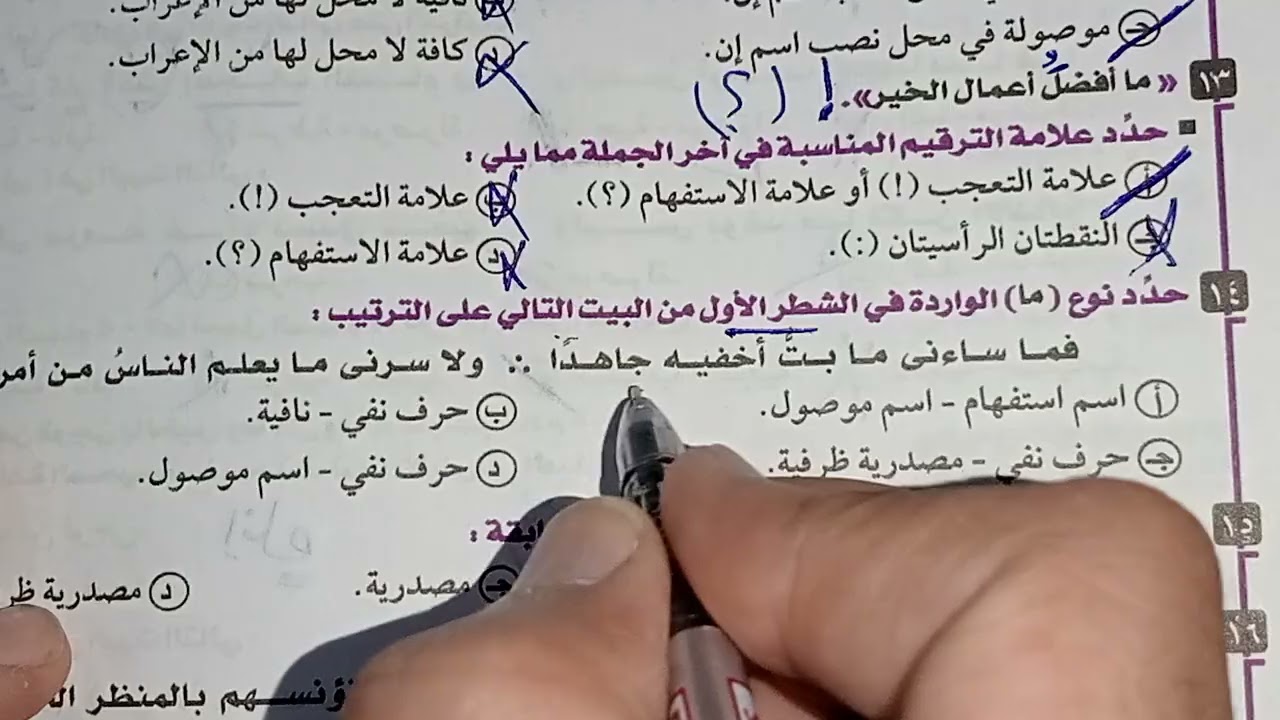 نافية لا محل لها من الإعراب.
جـ موصولة في محل نصب اسم إن. د كافة لا محل لها من الإعراب.
١٣ «ما أفضلُ أعمال الخير». ! (؟)
■ حدِّد علامة الترقيم المناسبة في آخر الجملة مما يلي :
أ علامة التعجب (!) أو علامة الاستفهام (؟). ب علامة التعجب (!).
جـ النقطتان الرأسيتان (:). د علامة الاستفهام (؟).
١٤ حدِّد نوع (ما) الواردة في الشطر الأول من البيت التالي على الترتيب :
فما ساءنى ما بتُّ أخفيه جاهدًا ∴ ولا سرنى ما يعلم الناسُ من أمر
أ اسم استفهام - اسم موصول. ب حرف نفي - نافية.
جـ حرف نفي - مصدرية ظرفية. د حرف نفي - اسم موصول.
١٥
جـ مصدرية. د مصدرية
١٦
بالمنظر